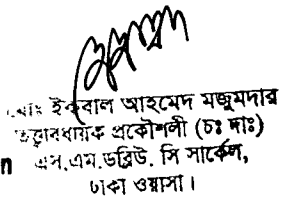 মোঃ ইকবাল আহমেদ মজুমদার
তত্ত্বাবধায়ক প্রকৌশলী (চঃ দাঃ)
n এস.এম.ডব্লিউ. সি সার্কেল,
ঢাকা ওয়াসা।